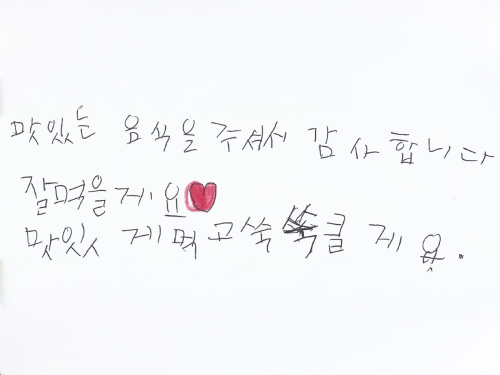 맛있는 음식을 주셔서 감사합니다
잘먹을게요♥
맛잇게먹고쑥쑥클게욥.